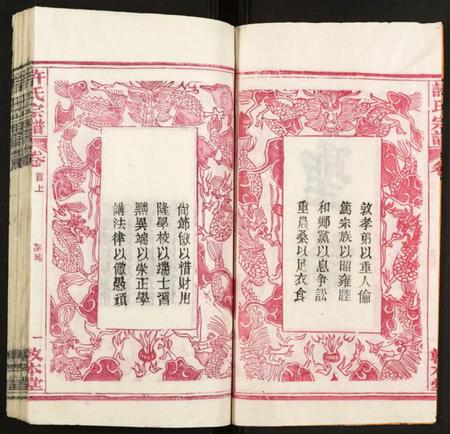 許氏宗譜
卷
敦本堂
敦孝弟以重人倫
篤宗族以昭雍睦
和鄉黨以息爭訟
重農桑以足衣食
尚節儉以惜財用
隆學校以端士習
黜異端以崇正學
講法律以儆愚頑
許氏宗譜
卷首上
一
敦本堂